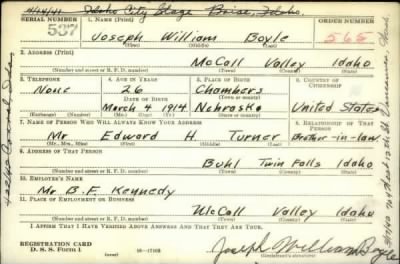 4/14/41 Idaho City Stage Boise, Idaho.
SERIAL NUMBER 1. NAME (Print) ORDER NUMBER
537 Joseph William Boyle 565
(First) (Middle) (Last)
2. ADDRESS (Print)
McCall Valley Idaho
(Number and street or R. F. D. number) (Town) (County) (State)
3. TELEPHONE 4. AGE IN YEARS 5. PLACE OF BIRTH 6. COUNTRY OF CITIZENSHIP
None 26 Chambers
DATE OF BIRTH (Town or county)
March 4 1914 Nebraska United States
(Exchange) (No.) (Mo.) (Day) (Yr.) (State or country)
7. NAME OF PERSON WHO WILL ALWAYS KNOW YOUR ADDRESS 8. RELATIONSHIP OF THAT PERSON
Mr Edward H Turner Brother-in-law
(Mr., Mrs., Miss) (First) (Middle) (Last)
9. ADDRESS OF THAT PERSON
Buhl Twin Falls Idaho
(Number and street or R. F. D. number) (Town) (County) (State)
10. EMPLOYER'S NAME
Mr. B.F. Kennedy
11. PLACE OF EMPLOYMENT OR BUSINESS
McCall Valley Idaho
(Number and street or R. F. D. number) (Town) (County) (State)
I AFFIRM THAT I HAVE VERIFIED ABOVE ANSWERS AND THAT THEY ARE TRUE.
REGISTRATION CARD
D. S. S. Form 1 16-17105
Joseph William Boyle
(Registrant's signature)